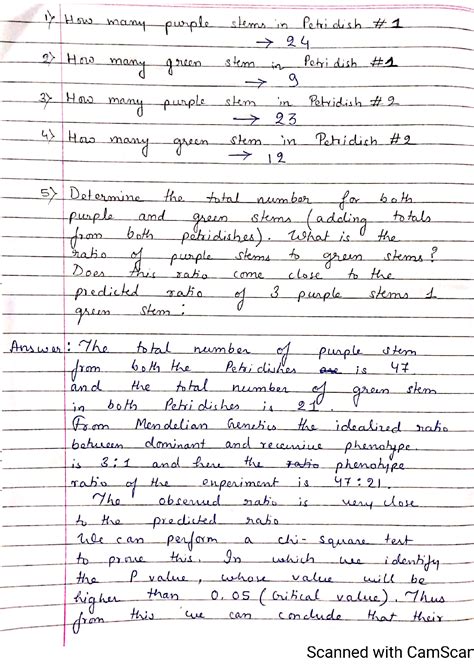 1) How many purple stems in Petridish #1
→ 24
2) How many green stem in Petridish #1
→ 9
3) How many purple stem in Petridish #2
→ 23
4) How many green stem in Petridish #2
→ 12
5) Determine the total number for both
purple and green stems (adding totals
from both petridishes). What is the
ratio of purple stems to green stems?
Does this ratio come close to the
predicted ratio of 3 purple stems 1
green stem:
Answer: The total number of purple stem
from both the Petridishes is 47
and the total number of green stem
in both Petridishes is 21.
From Mendelian Genetics the idealized ratio
between dominant and recessive phenotype.
is 3:1 and here the ratio phenotype
ratio of the experiment is 47:21.
The observed ratio is very close
to the predicted ratio
We can perform a chi-square test
to prove this. In which we identify
the P value, whose value will be
higher than 0.05 (Critical value). Thus
from this we can conclude that their
Scanned with CamScan